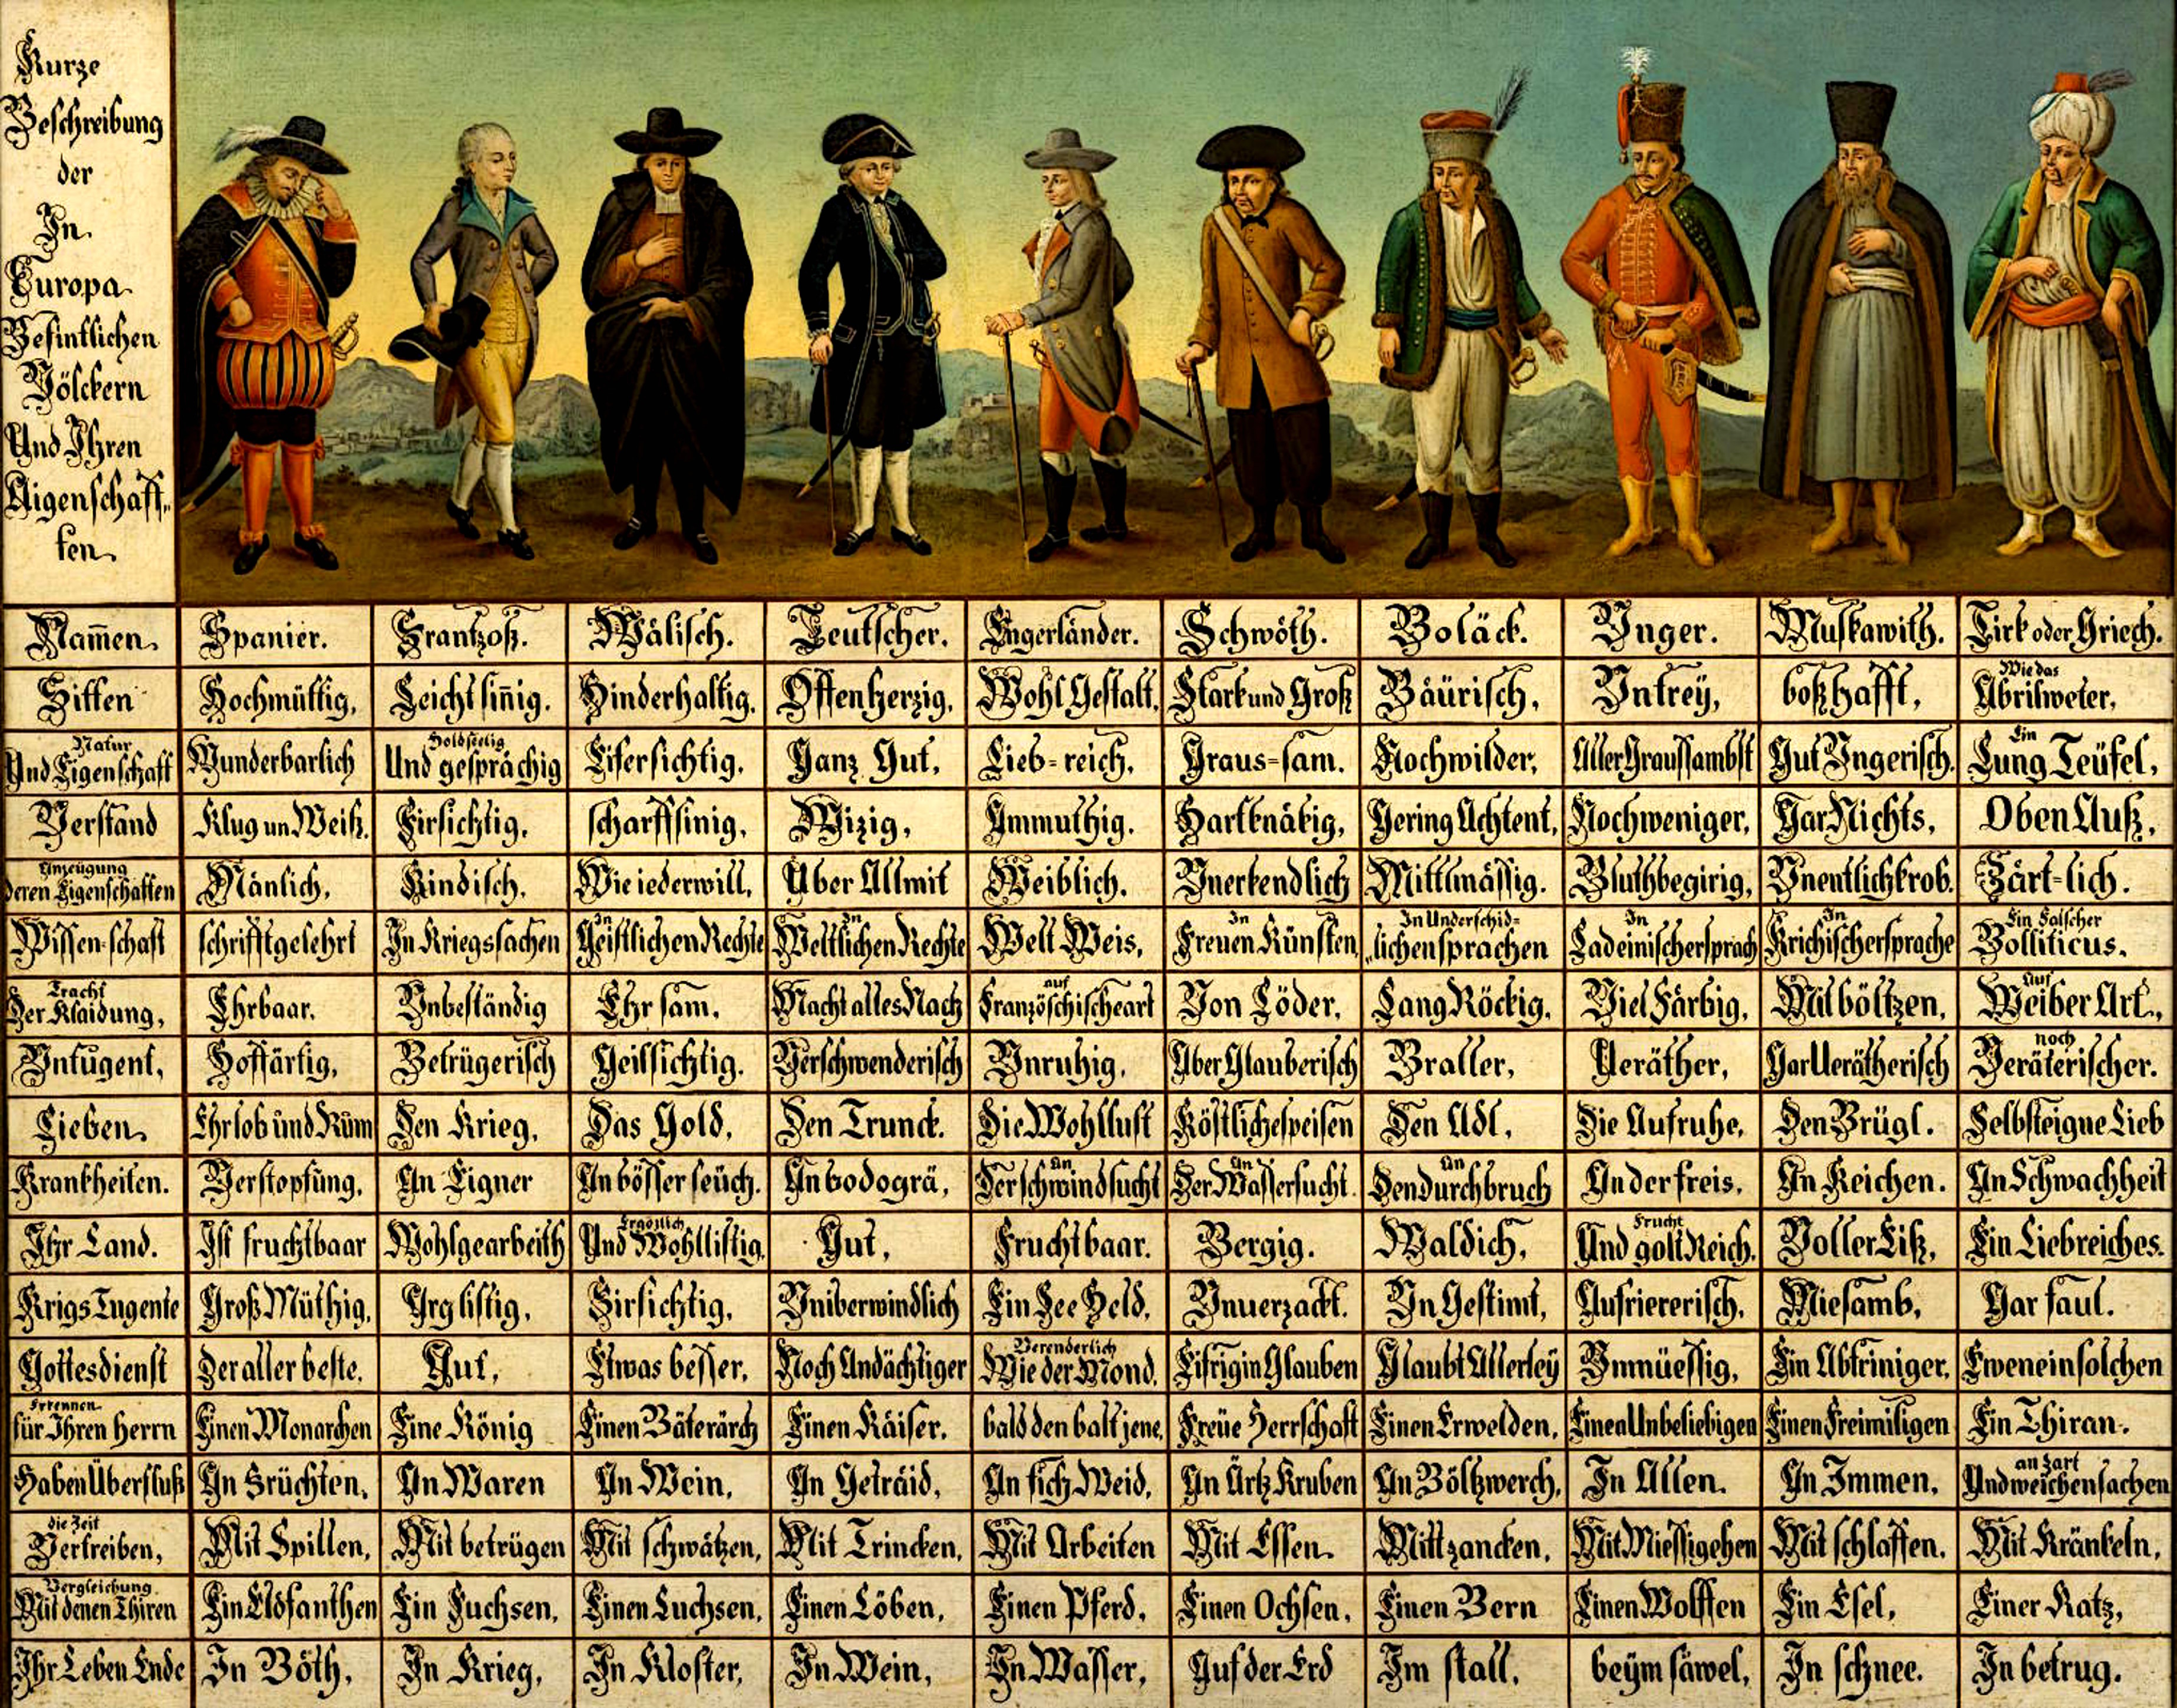 Kurze
Beschreibung
der
In
Europa
Befintlichen
Völckern
Und Ihren
Aigenschaff„
ten
Namen. Spanier. Frantzoß. Wälisch. Teutscher. Engerländer. Schwöth. Boläck. Vnger. Muskawith. Tirk oder Griech.
Sitten Hochmüttig, Leicht sinig. Hinderhaltig. Offenherzig, Wohl Gestalt, Stark und Groß Bäürisch, Vntrey, boßhafft, Wie das Abrilweter,
Natur Und Eigenschaft Wunderbarlich Holdseelig Und gesprächig Eifersichtig. Ganz Gut, Lieb=reich, Graus=sam. Nochwilder, Aller Graussambst Gut Vngerisch. Ein Lung Teüfel,
Verstand Klug un Weiß. Firsichtig, scharffsinig, Wizig, Ammuthig. Hartknäkig, Gering Achtent, Nochweniger, Gar Nichts, Oben Auß,
Anzeügung deren Eigenschaften Mänlich, Kindisch, Wie iederwill, Über Allmit Weiblich. Vnerkendlich Mittlmässig. Bluthbegirig, Vnentlichkrob. Zärt-lich.
Wissen-schaft schrifftgelehrt In Kriegssachen In Geistlichen Rechte In Weltlichen Rechte Welt Weis, In Freuen Künsten, In Underschid= „lichen sprachen In Ladeinischersprach In Krichischersprache Ein Falscher Bolliticus.
Tracht Der Klaidung, Ehrbaar. Vnbeständig Ehr sam. Macht alles Nach auf Französchischeart Von Löder, Lang Röckig, Viel Färbig, Mit böltzen, Auf Weiber Art,
Vntugent, Hoffärtig, Betrügerisch Geilsichtig. Verschwenderisch Vnruhig, Aber Glauberisch Braller, Veräther, Gar Verätherisch noch Veräterischer.
Lieben. Ehrlob und Rüm Den Krieg, Das Gold, Den Trunck. Die Wohllust Köstlichespeisen Den Adl, Die Aufruhe, Den Brügl. Selbsteigne Lieb
Krankheiten. Verstopfung, An Eigner An bösser seüch. An bodogrä, An Der schwindsucht An Der Wassersucht. An Den durchbruch An der freis, An Keichen. An Schwachheit
Ihr Land. Ist fruchtbaar Wohlgearbeith Ergözlich Und Wohllistig, Gut, Fruchtbaar. Bergig. Waldich, Frucht Und golt Reich, Voller Eiß, Ein Liebreiches.
Krigs Tugente Groß Müthig, Arg listig, Firsichtig, Vniberwindlich Ein See Held, Vnuerzackt. Vn Gestimt, Aufriererisch, Miesamb, Gar faul.
Gottesdienst Der aller beste, Gut, Etwas besser, Noch Andächtiger Verenderlich Wie der Mond, Eifrig in Glauben Glaubt Allerley Vnmüessig, Ein Abtriniger, Eweneinsolchen
Erkennen für Ihren Herrn Einen Monarchen Eine König Einen Bäterärch Einen Käiser, bald den balt jene, Freüe Herrschaft Einen Erwelden, Einen Unbeliebigen Einen Freimiligen Ein Thiran.
Haben Überfluß An Früchten, An Waren An Wein, An Geträid, An fich Weid, An Ärtz Kruben An Böltzwerch, In Allen. An Immen, an Zart Und weichen sachen
die Zeit Vertreiben, Mit Spillen, Mit betrügen Mit schwätzen, Mit Trincken, Mit Arbeiten Mit Essen. Mitt zancken, Mit Miessigehen Mit schlaffen, Mit Kränkeln,
Vergleichung Mit denen Thiren Ein Elofanthen Ein Fuchsen, Einen Luchsen, Einen Löben, Einen Pferd, Einen Ochsen, Einen Bern Einen Wolffen Ein Esel, Einer Katz,
Ihr Leben Ende In Böth, In Krieg, In Kloster, In Wein, In Wasser, Auf der Erd Im stall, beÿm säwel, In schnee. In betrug.